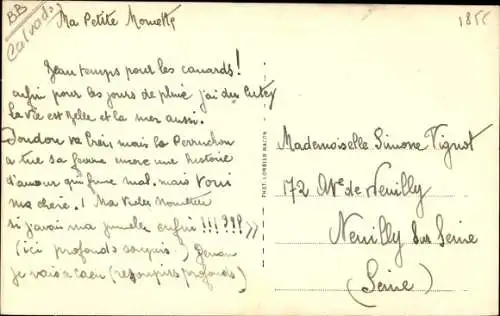 BB
Calvados
1855
Ma Petite Monette
Beau temps pour les canards!
enfin pour les jours de pluie j'ai du
la vie est belle et la mer aussi.
Doudou va bien mais la Perruchon
a tué sa femme encore une histoire
d'amour qui finie mal. mais vous
ma chère.! Ma vieille Monette
si j'avais ma enfin!!!???»
(ici profonds soupirs.) Demain
je vais a Caen (resoupirs profonds)
PHOT. COMBIER MACON
Mademoiselle Simone Tignot
172 Ave de Neuilly
Neuilly sur Seine
(Seine)